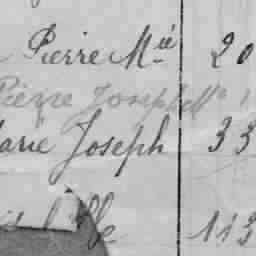 Pierre Mié 20
Pierre Joseph Mié
Marie Joseph 33
113